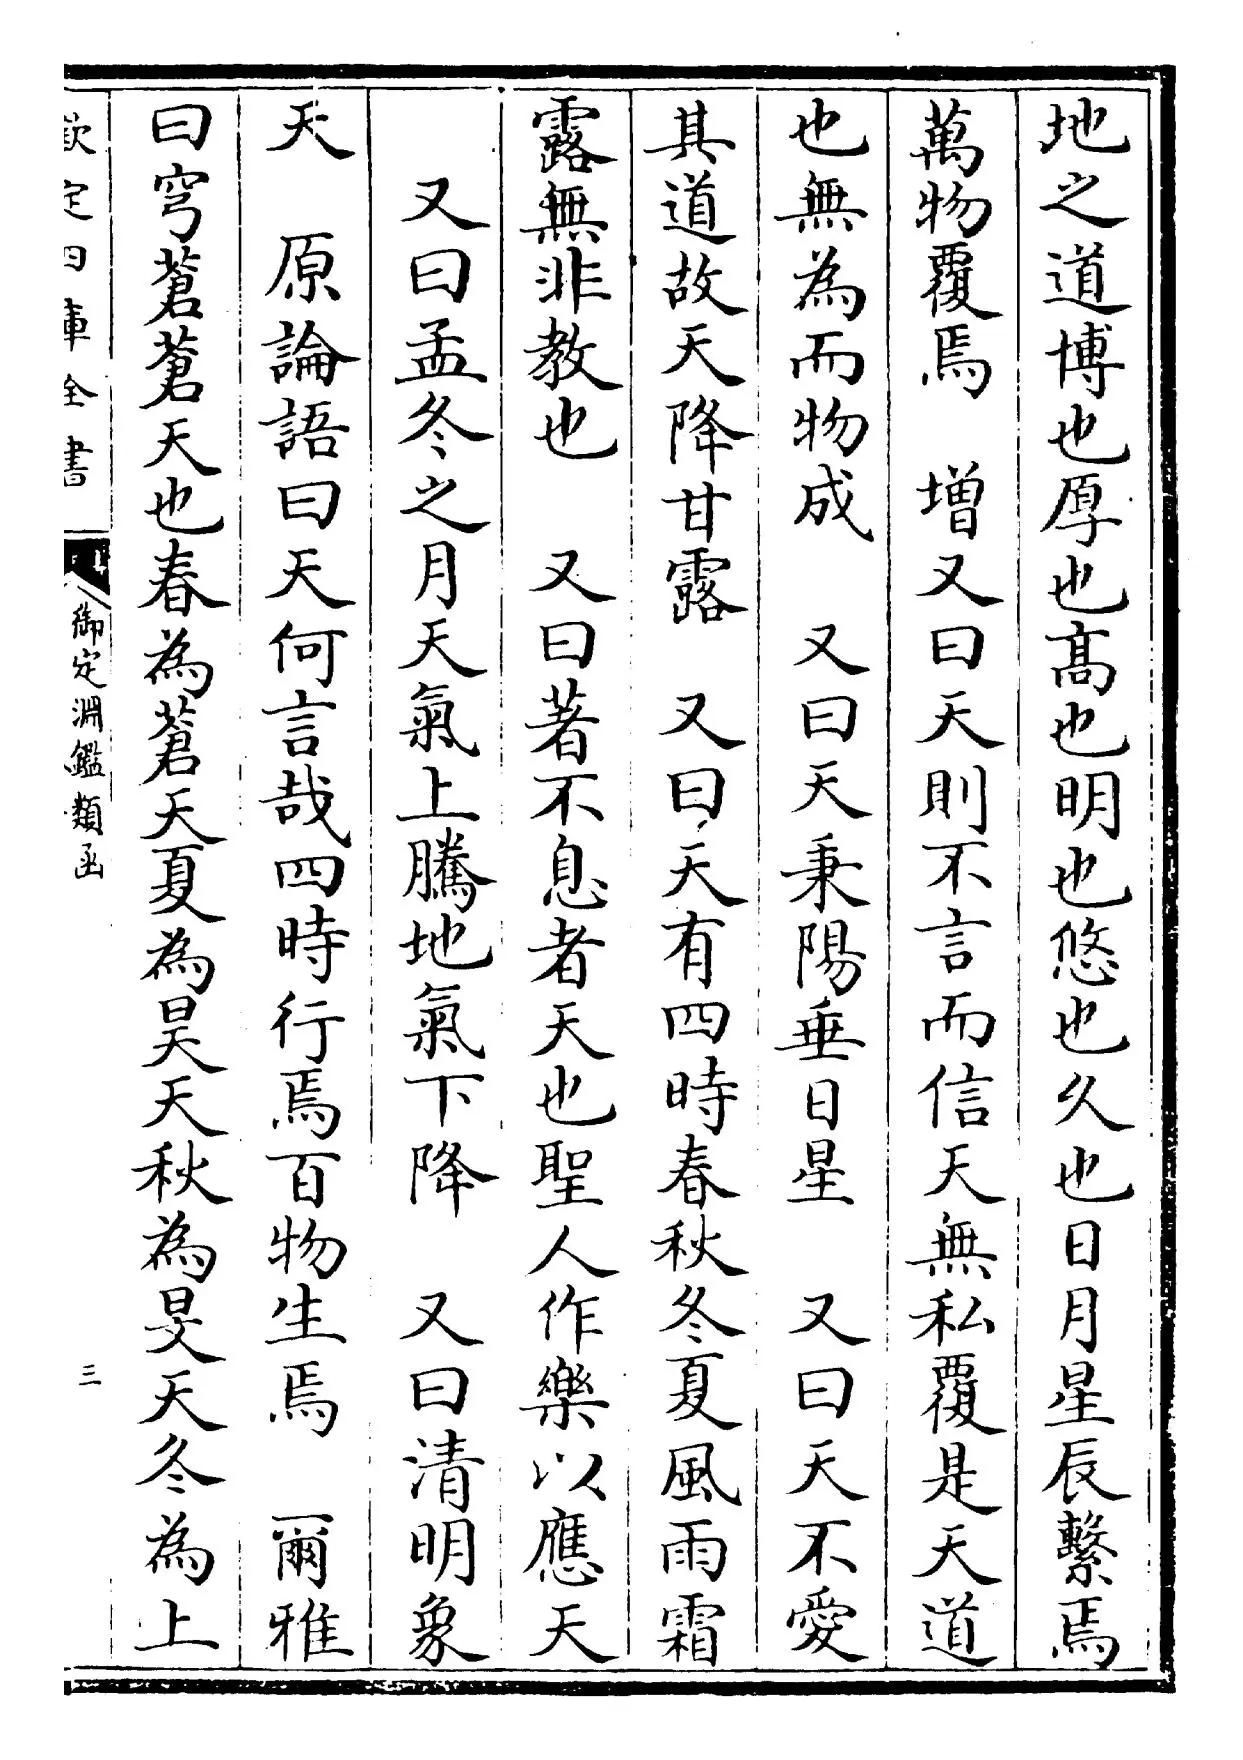 地之道博也厚也髙也明也悠也久也日月星辰繫焉
萬物覆焉　增又曰天則不言而信天無私覆是天道
也無為而物成　又曰天秉陽垂日星　又曰天不愛
其道故天降甘露　又曰天有四時春秋冬夏風雨霜
露無非教也　又曰著不息者天也聖人作樂以應天
又曰孟冬之月天氣上騰地氣下降　又曰清明象
天　原論語曰天何言哉四時行焉百物生焉　爾雅
曰穹蒼蒼天也春為蒼天夏為昊天秋為旻天冬為上
欽定四庫全書
御定淵鑑類函
三